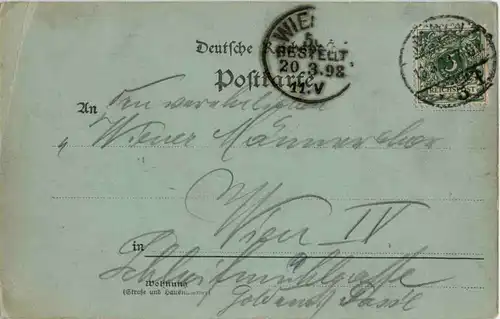 WIEN
5
BESTELLT
20.3.98
11.V
Deutsche
Postkarte
5
REICHSPOST
An Den verehrlichen
Wiener Männerchor
Wien IV
in Schleifmühlgasse
Wohnung
(Straße und Hausnummer)